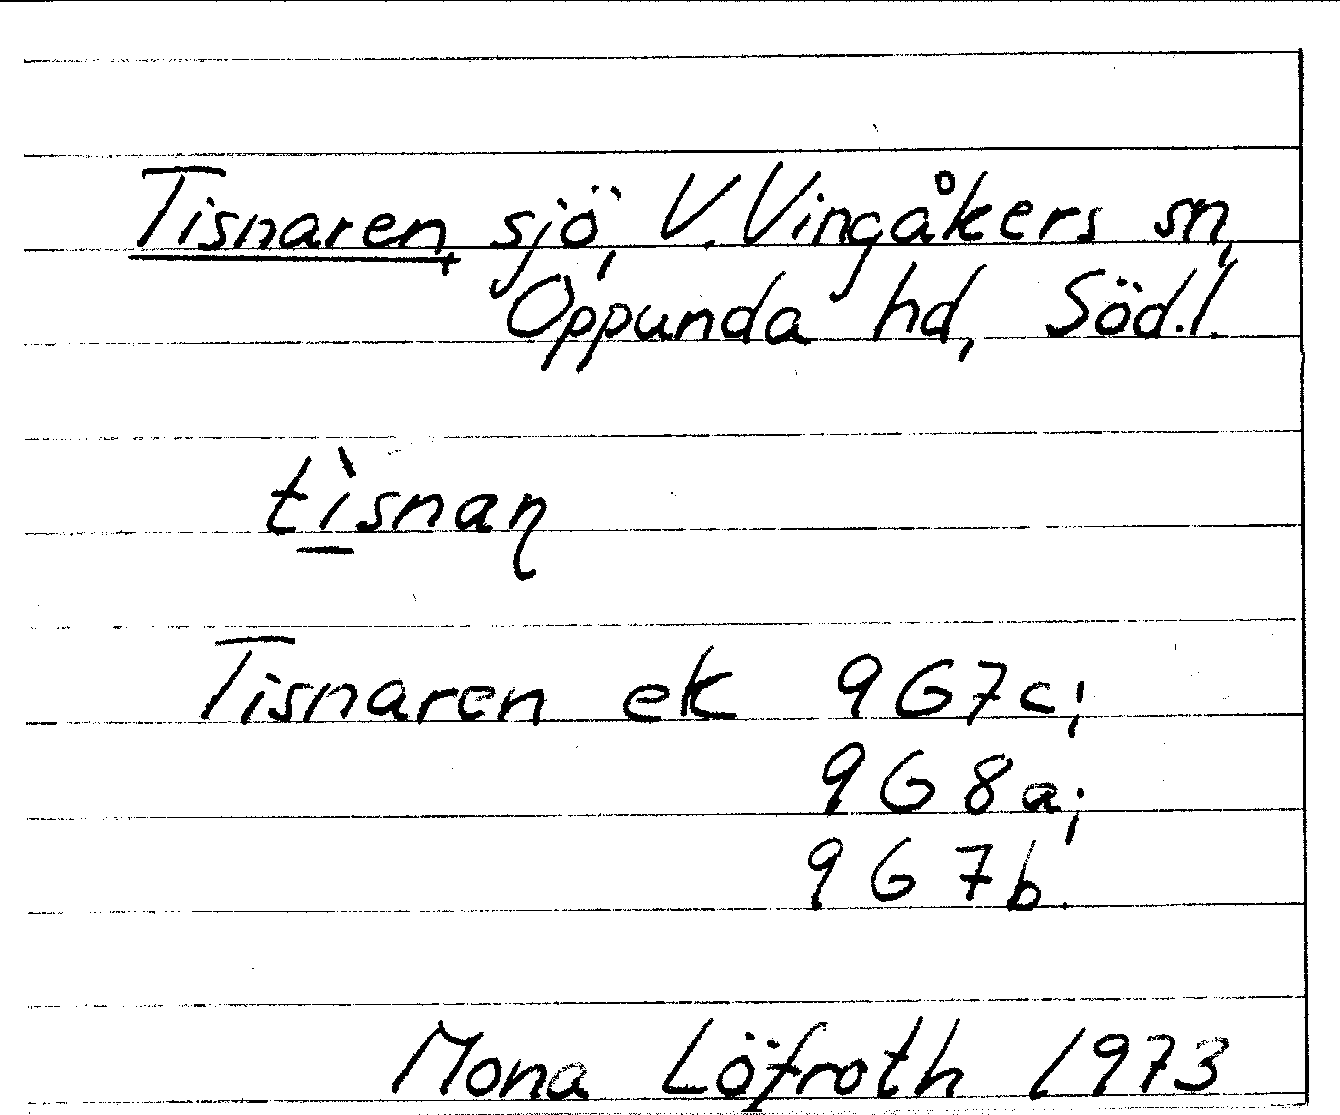 Tisnaren, sjö, V. Vingåkers sn,
Oppunda hd, Söd.l.
tı̲̀snaɳ
Tisnaren ek 9G7c;
9G8a;
9G7b.
Mona Löfroth 1973